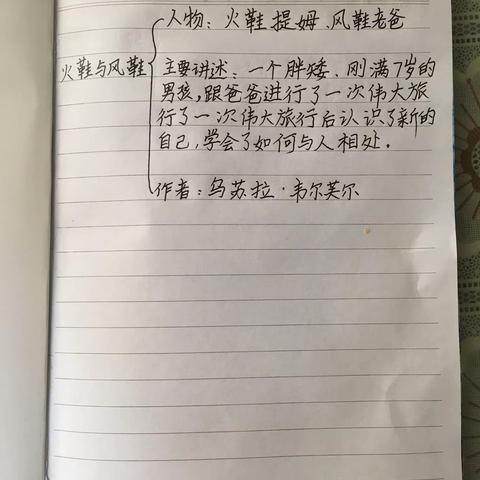 人物：火鞋提姆、风鞋老爸
火鞋与风鞋
主要讲述：一个胖矮、刚满7岁的
男孩，跟爸爸进行了一次伟大旅
行了一次伟大旅行后认识了新的
自己，学会了如何与人相处．
作者：乌苏拉·韦尔芙尔